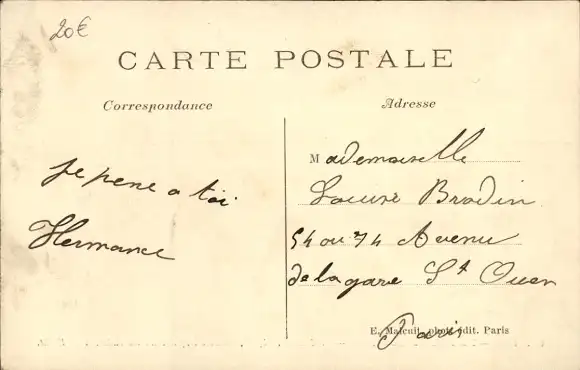 20€
CARTE POSTALE
Correspondance
Adresse
Je pense a toi
Hermance
Mademoiselle
Brodin
54 ou 74 Avenu
de la gare St Ouen
Paris
E. Malcuit, phot. édit. Paris